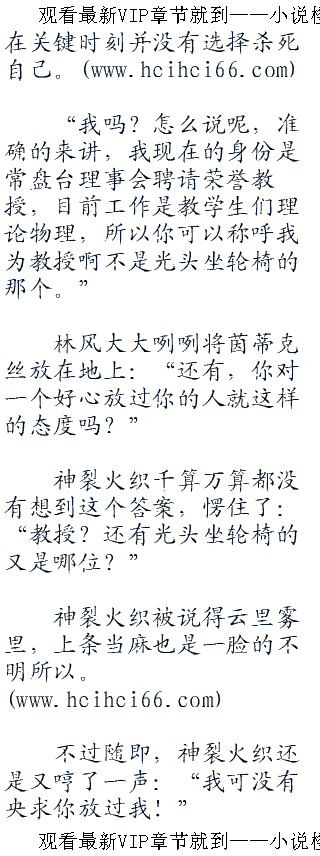 观看最新VIP章节就到——小说检
在关键时刻并没有选择杀死
自己。(www.hcihci66.com)
“我吗？怎么说呢，准
确的来讲，我现在的身份是
常盘台理事会聘请荣誉教
授，目前工作是教学生们理
论物理，所以你可以称呼我
为教授啊不是光头坐轮椅的
那个。”
林风大大咧咧将茵蒂克
丝放在地上：“还有，你对
一个好心放过你的人就这样
的态度吗？”
神裂火织千算万算都没
有想到这个答案，愣住了：
“教授？还有光头坐轮椅的
又是哪位？”
神裂火织被说得云里雾
里，上条当麻也是一脸的不
明所以。
(www.hcihci66.com)
不过随即，神裂火织还
是又哼了一声：“我可没有
央求你放过我！”
观看最新VIP章节就到——小说检